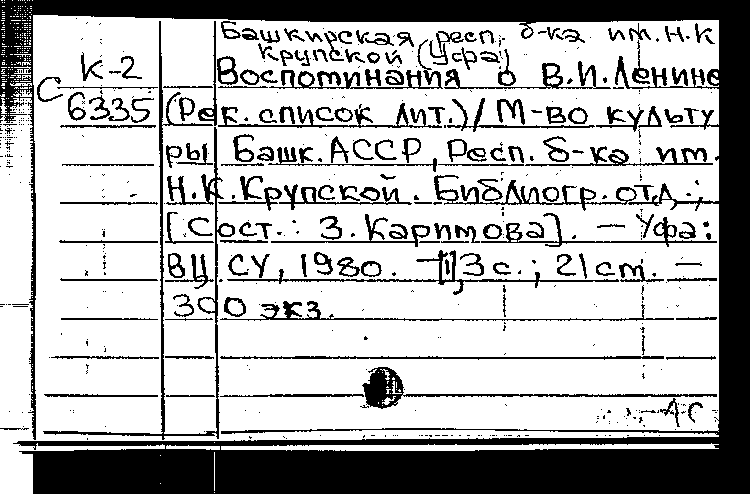 Башкирская респ. б-ка им. Н.К
Крупской (Уфа)
К-2
Воспоминания о В.И.Ленине
С 6335
(Рек. список лит.)/ М-во культу
ры Башк. АССР, Респ. б-ка им.
Н.К.Крупской. Библиогр. отд.;
[Сост.: З. Каримова]. — Уфа:
ВЦ СУ, 1980. — 3 с.; 21 см. —
300 экз.
АС